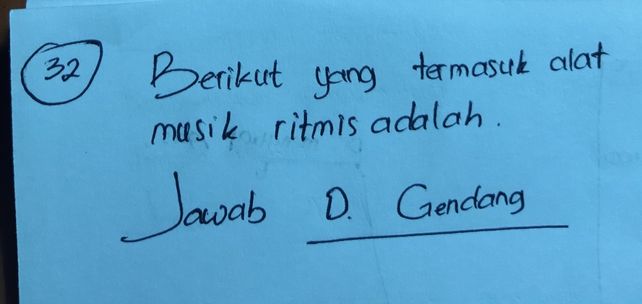 32 Berikut yang termasuk alat
musik ritmis adalah.
Jawab D. Gendang